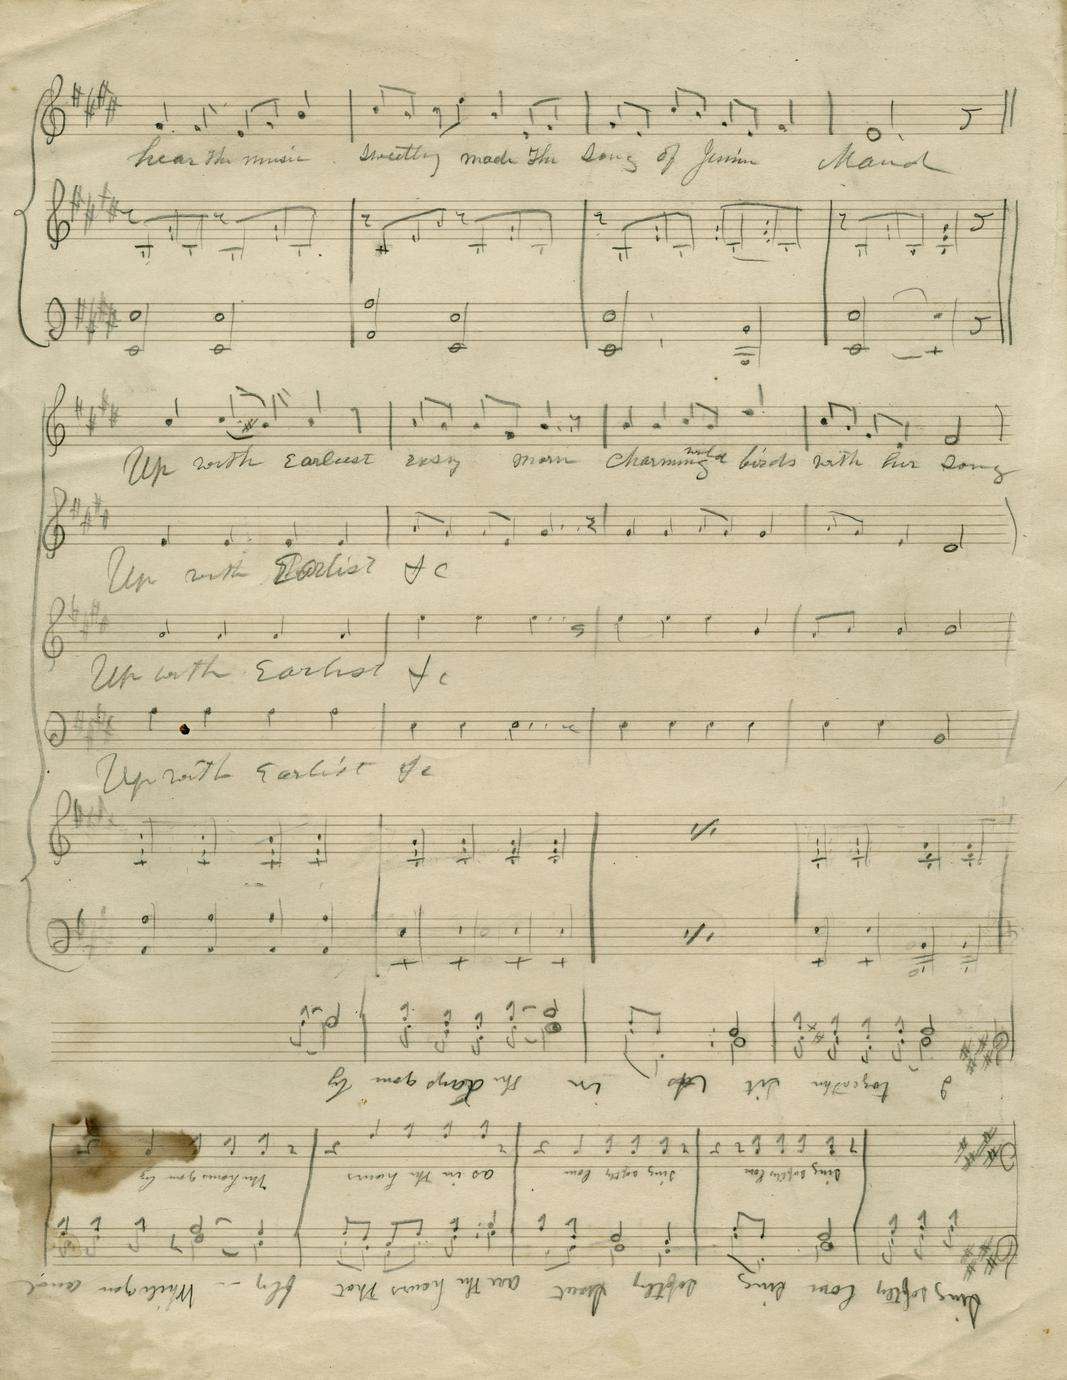 hear the music sweetly made the song of Jennie Maud
Up with Earliest rosy morn charming wild birds with her song
Up with Earlist &c
Up with Earlist &c
Up with Earlist &c
Sing softly love sing softly sweet are the hours that fly While you
Sing softly love Sing softly love as in the hours The hours gone by
together let us in the days gone by